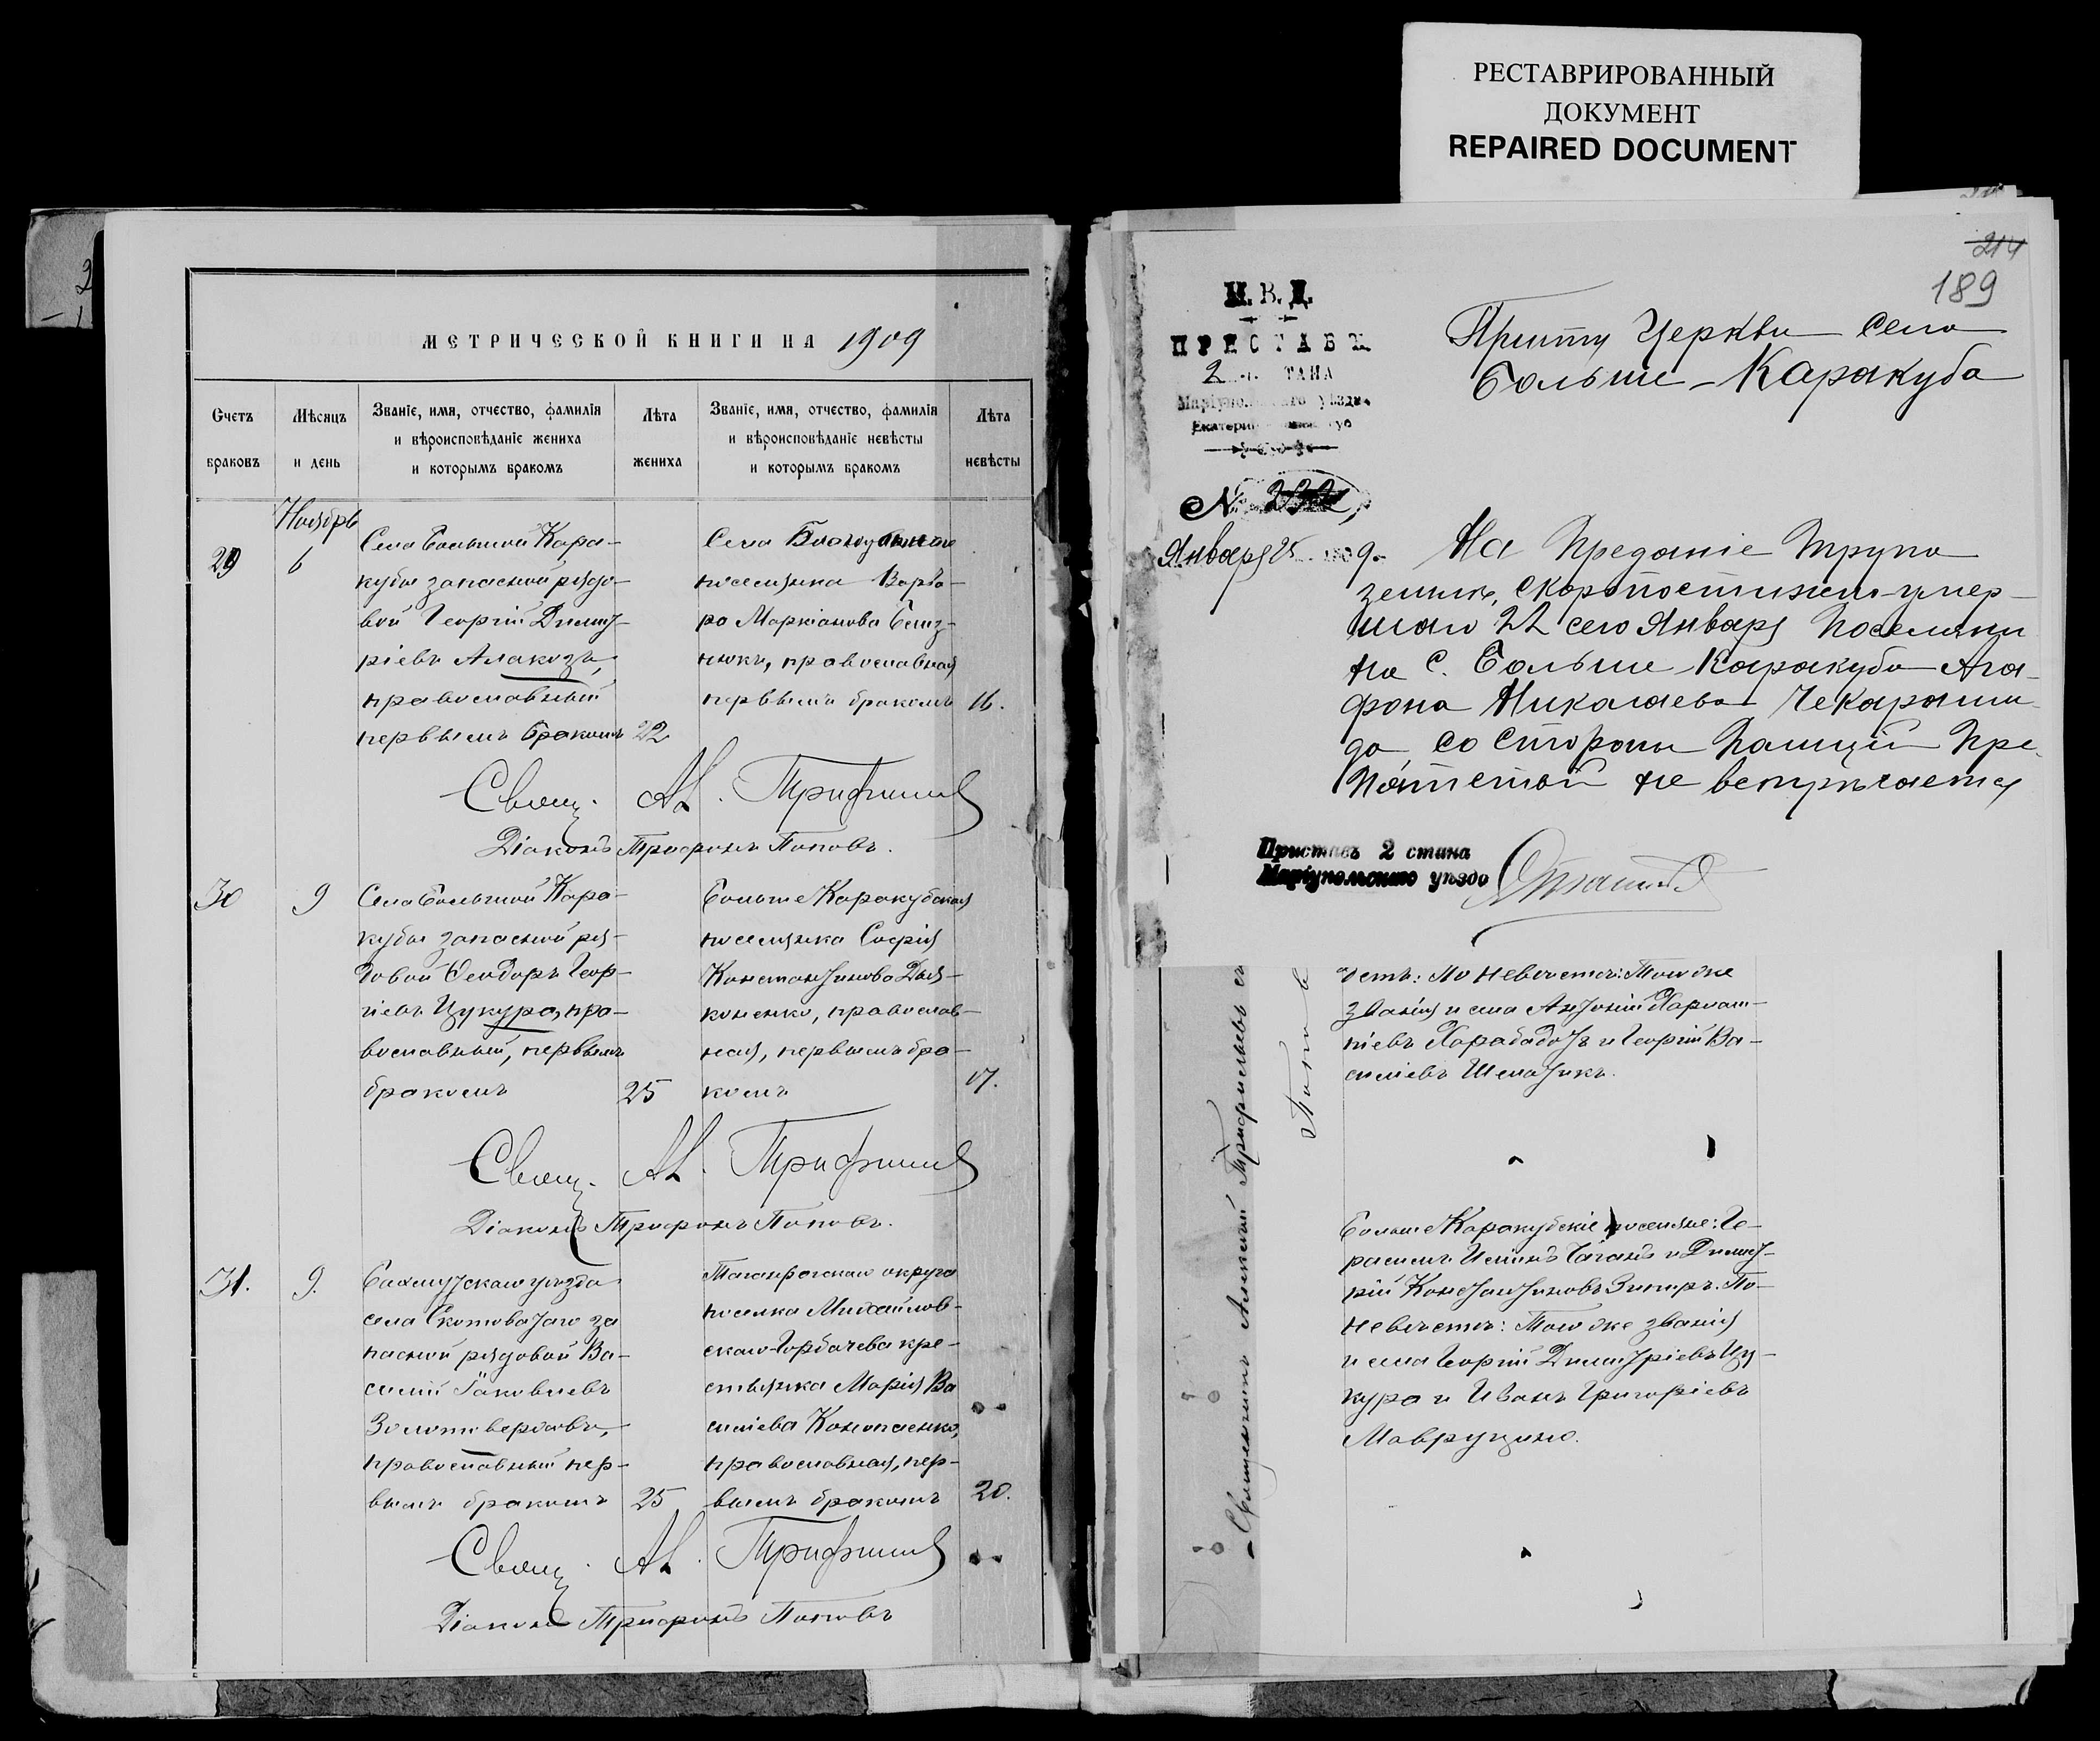 РЕСТАВРИРОВАННЫЙ
ДОКУМЕНТ
REPAIRED DOCUMENT
МЕТРИЧЕСКОЙ КНИГИ НА 1909
Счетъ браковъ
Мѣсяцъ и день
Званіе, имя, отчество, фамилія
и вѣроисповѣданіе жениха
и которымъ бракомъ
Лѣта жениха
Званіе, имя, отчество, фамилія
и вѣроисповѣданіе невѣсты
и которымъ бракомъ
Лѣта невѣсты
Ноябрь
29
6
Села Большой Кара-
кубы запасной рядо-
вой Георгій Димит-
ріевъ Алакозъ,
православный
первымъ бракомъ
22
Села
поселянка Варва-
ра Маркіанова
православная
первымъ бракомъ
16.
Свящ. Ал. Трифильев
Діаконъ Трифонъ Поповъ.
30
9
Села Большой Кара-
кубы запасной ря-
довой Ѳеодоръ Геор-
гіевъ Цукура, пра-
вославный, первымъ
бракомъ
25
Больше Каракубская
поселянка Софія
Константинова Дья-
коненко, православ-
ная, первымъ бра-
комъ
17.
Свящ. Ал. Трифильев
Діаконъ Трифонъ Поповъ.
31.
9.
Бахмутскаго уѣзда
села Скотоватаго за
пасной рядовой Ва-
силій Іаковлевъ
Золотоверховъ,
православный пер-
вымъ бракомъ
25
Таганрогскаго округа
поселка Михайлов-
скаго-Горбачева кре-
стьянка Марія Ва
силіева Конопаенко,
православная, пер-
вымъ бракомъ
20.
Свящ. Ал. Трифильев
Діаконъ Трифонъ Поповъ
214
189
М. В. Д.
ПРИСТАВЪ
2 СТАНА
Маріупольскаго уѣзда
№ 232
Января 25 1909 г.
Причту Церкви села
Больше-Каракуба
На преданіе трупа
землѣ, скоропостижно умер-
шаго 22 сего Января поселяни
на с. Больше Каракуба Ага-
фона Николаева
да со стороны Полиціи пре-
пятствій не встрѣчается
Приставъ 2 стана
Маріупольскаго уѣзда
По невѣстѣ: Того же
званія и села Антоній Харлам-
піевъ Харабадотъ и Георгій Ва-
силіевъ Шелатикъ.
Священникъ Алексѣй Трифильевъ
Больше Каракубскіе поселяне: Ге-
расимъ и Димит-
рій Константиновъ По
невѣстѣ: Того же званія
и села Георгій Димитріевъ Цу-
кура и Иванъ Григоріевъ